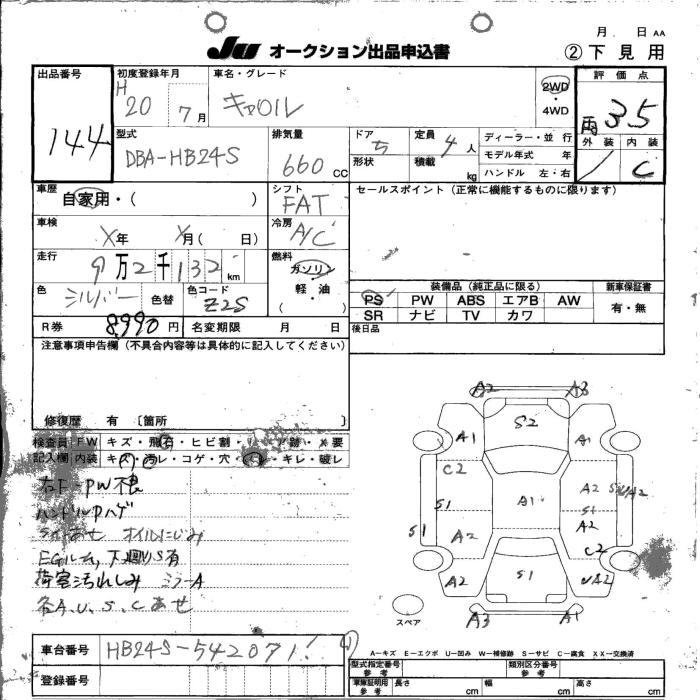 月 日 AA
JU オークション出品申込書 ② 下見用
出品番号 初度登録年月 車名・グレード 評価点
144 H 20 7月 キャロル 2WD 4WD 3.5
型式 排気量 ドア 定員 ディーラー・並 行 外装 内装
DBA-HB24S 660 CC 5 4人 モデル年式 年 C
形状 積載 kg ハンドル 左・右
車歴 シフト セールスポイント(正常に機能するものに限ります)
自家用・( ) FAT
車検 冷房
X年 月( 日) A/C
走行 燃料
9万2千132 km ガソリン 軽・油 ( )
装備品(純正品に限る) 新車保証書
色 色替 色コード
シルバー Z2S
PS PW ABS エアB AW 有・無
SR ナビ TV カワ
R券 8,990円 名変期限 月 日 後日品
注意事項申告欄(不具合内容等は具体的に記入してください)
修復歴 有 〔箇所 〕
検査員 FW キズ・飛石・ヒビ割・ 跡・ 要
記入欄 内装 キズ・汚レ・コゲ・穴・ ・キレ・破レ
右F-PW不良
ハンドルPハゲ
ライトあせ オイルにじみ
EGルーム,下廻りS有
荷室汚れしみ ミラーA
各A,U,S,Cあせ
A2 A3
S2
A1 A1
C2
A1 A2
S1 S1
S1 A2
A2 C2
A2 S1 UA2
スペア A3 A1
A―キズ E―エクボ U―凹み W―補修跡 S―サビ C―腐食 XX―交換済
車台番号 HB24S-542071
登録番号
型式指定番号 参考 類別区分番号
車庫証明用 参考 長さ cm 幅 cm 高さ cm